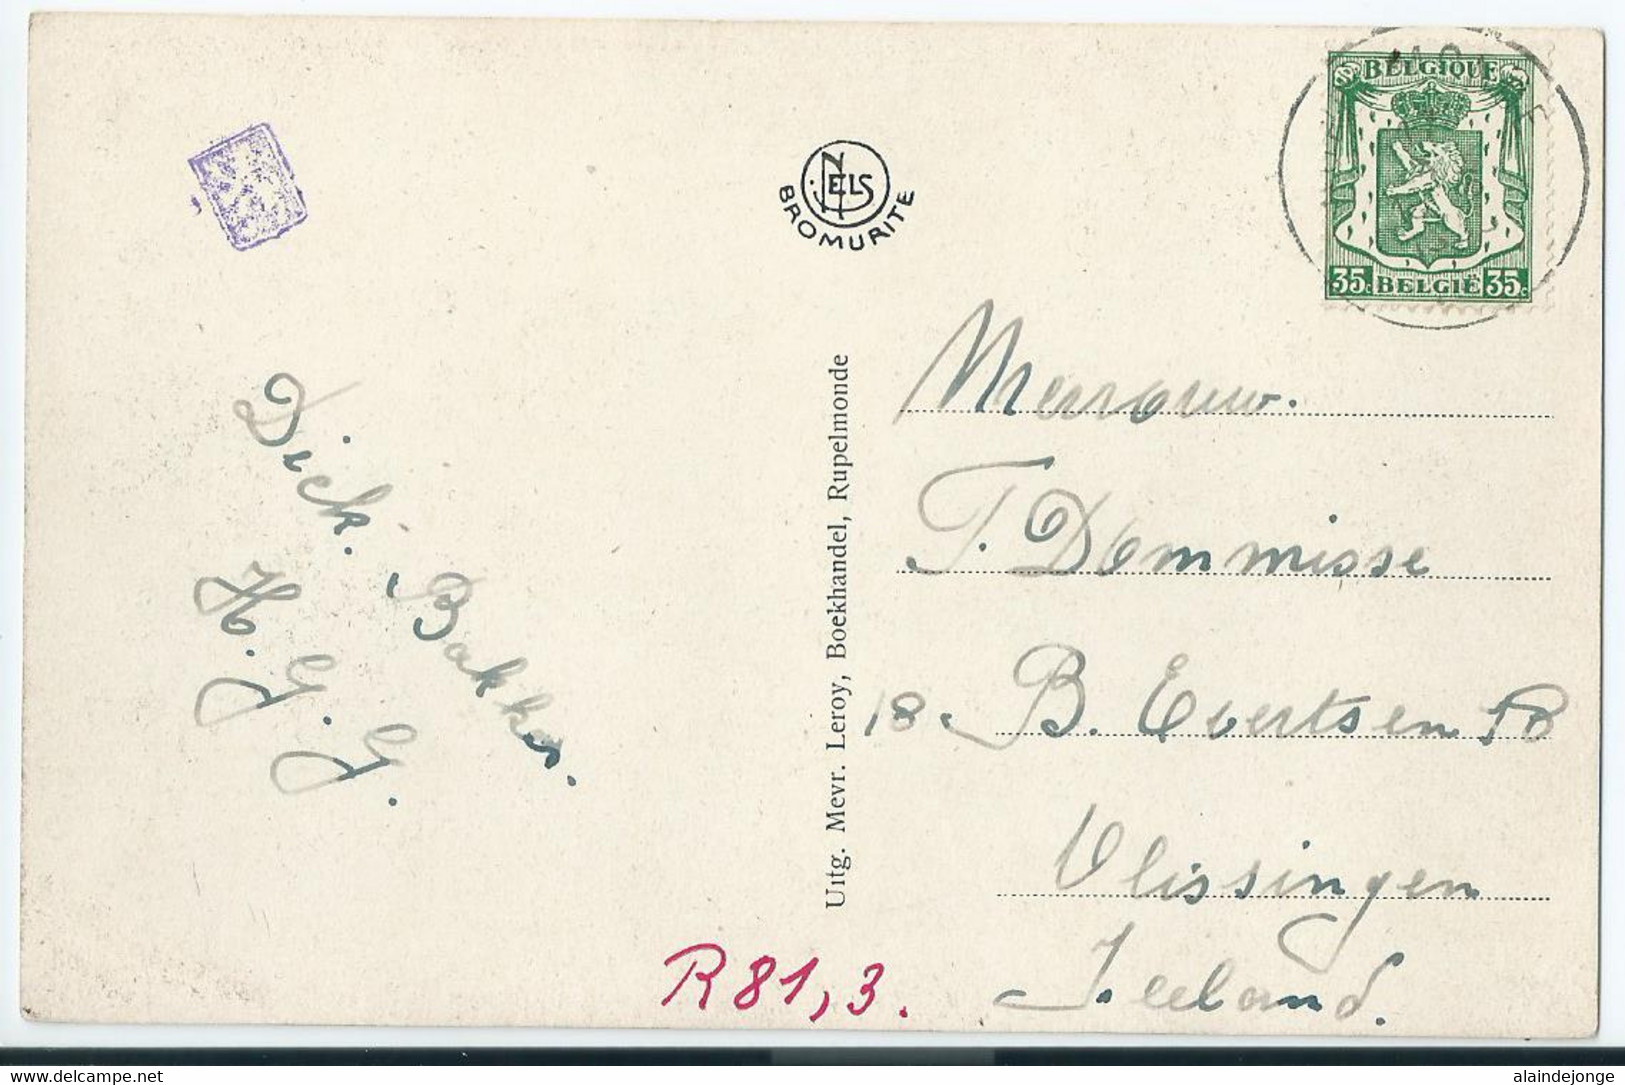 BELGIQUE
35c BELGIË 35c
NELS
BROMURITE
Uitg. Mevr. Leroy, Boekhandel, Rupelmonde
Dick. Bakker.
H. G. G.
Mevrouw.
T. Dommisse
18. B. Evertsen
Vlissingen
Zeeland.
R 81,3.
delcampe.net
alaindejonge